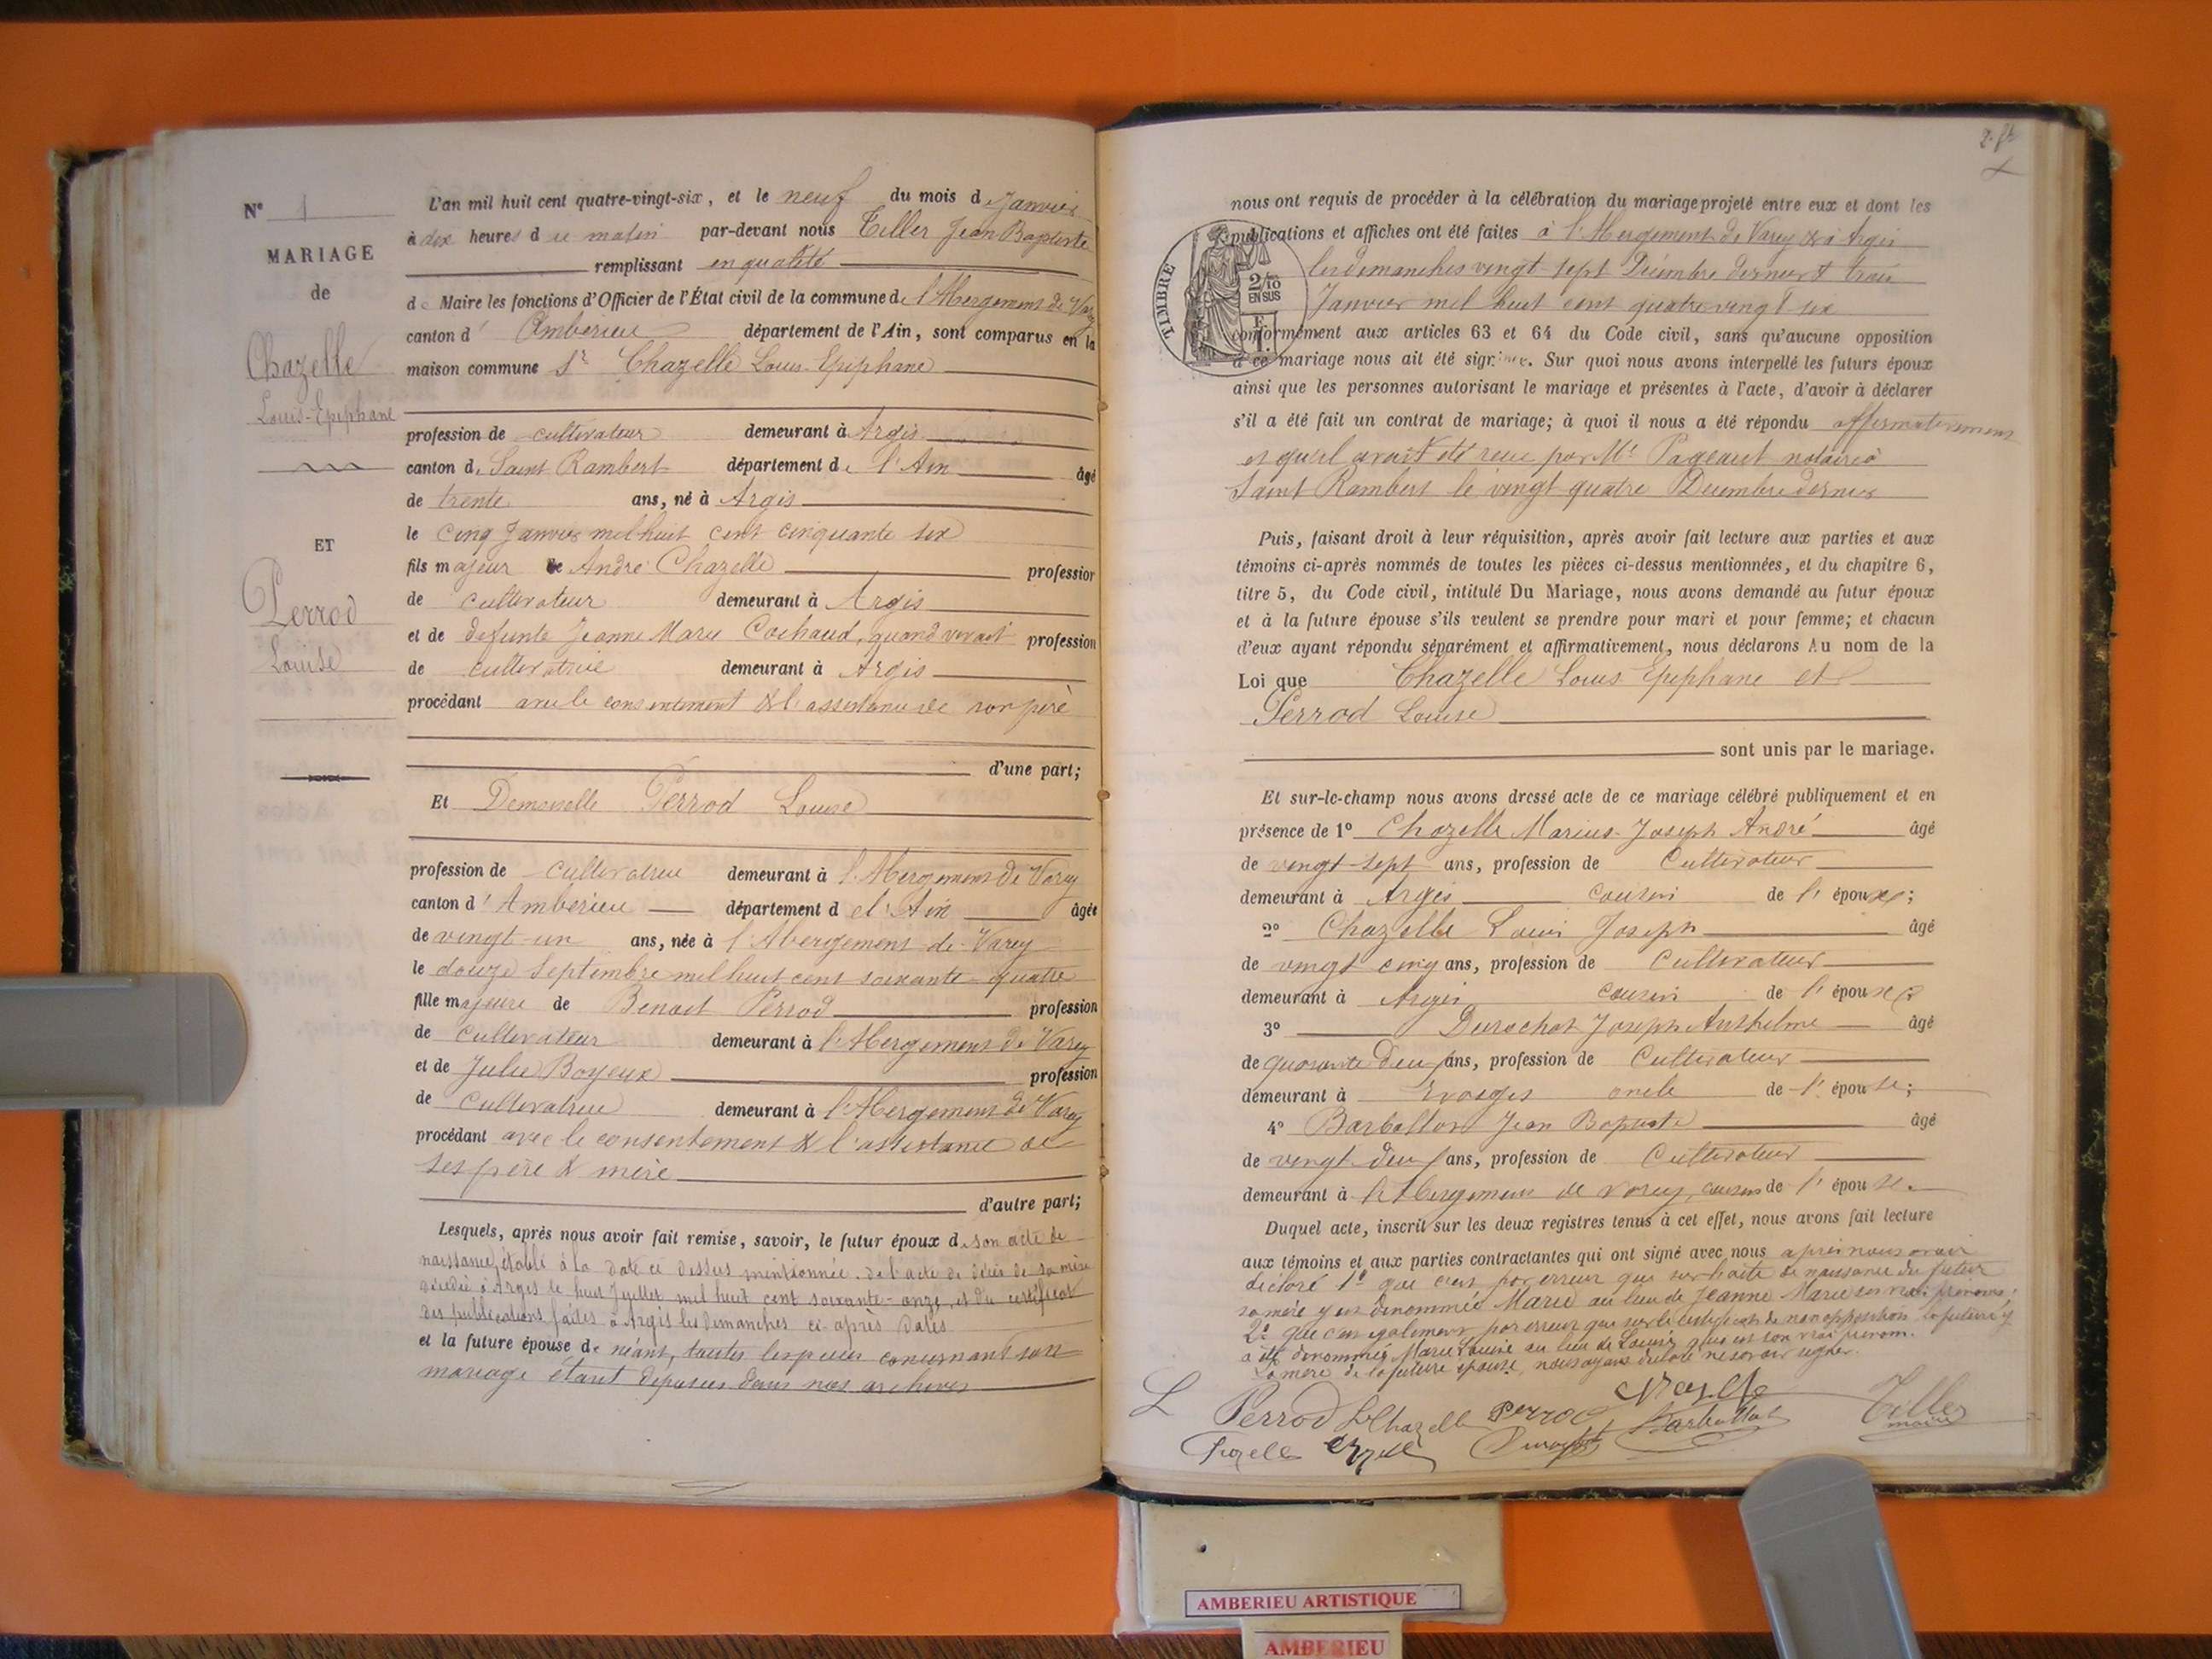 N° 1
MARIAGE
de
Chazelle
Louis-Epiphane
ET
Perrod
Louise
L'an mil huit cent quatre-vingt-six, et le neuf du mois de Janvier
à dix heures du matin par-devant nous Tiller Jean Baptiste
remplissant en qualité
de Maire les fonctions d'Officier de l'État civil de la commune de l'Abergement de Varey
canton d' Amberieu département de l'Ain, sont comparus en la
maison commune Sr Chazelle Louis Epiphane
profession de cultivateur demeurant à Argis
canton de Saint Rambert département de l'Ain âgé
de trente ans, né à Argis
le cinq Janvier mil huit cent cinquante six
fils majeur de André Chazelle profession
de cultivateur demeurant à Argis
et de defunte Jeanne Marie Cochaud, quand vivait profession
de cultivatrice demeurant à Argis
procédant avec le consentement & l'assistance de son père
d'une part;
Et Demoiselle Perrod Louise
profession de cultivatrice demeurant à l'Abergement de Varey
canton d'Amberieu département de l'Ain âgée
de vingt-un ans, née à l'Abergement-de-Varey
le douze Septembre mil huit cent soixante-quatre
fille majeure de Benoit Perrod profession
de cultivateur demeurant à l'Abergement de Varey
et de Julie Boyeux profession
de cultivatrice demeurant à l'Abergement de Varey
procédant avec le consentement & l'assistance de
ses père & mère
d'autre part;
Lesquels, après nous avoir fait remise, savoir, le futur époux de son acte de
naissance, établi à la date ci dessus mentionnée, de l'acte de décès de sa mère
décédée à Argis le huit Juillet mil huit cent soixante-onze, et du certificat
des publications faites à Argis les dimanches ci-après datés
et la future épouse de néant, toutes les pièces concernant son
mariage étant déposées dans nos archives
nous ont requis de procéder à la célébration du mariage projeté entre eux et dont les
publications et affiches ont été faites à l'Abergement de Varey & à Argis
les dimanches vingt-sept Décembre dernier & trois
Janvier mil huit cent quatre vingt six
TIMBRE
2/10
EN SUS
conformément aux articles 63 et 64 du Code civil, sans qu'aucune opposition
à ce mariage nous ait été signifiée. Sur quoi nous avons interpellé les futurs époux
ainsi que les personnes autorisant le mariage et présentes à l'acte, d'avoir à déclarer
s'il a été fait un contrat de mariage; à quoi il nous a été répondu affirmativement
et qu'il avait été reçu par Me Pageaut notaire à
Saint Rambert le vingt quatre Décembre dernier
Puis, faisant droit à leur réquisition, après avoir fait lecture aux parties et aux
témoins ci-après nommés de toutes les pièces ci-dessus mentionnées, et du chapitre 6,
titre 5, du Code civil, intitulé Du Mariage, nous avons demandé au futur époux
et à la future épouse s'ils veulent se prendre pour mari et pour femme; et chacun
d'eux ayant répondu séparément et affirmativement, nous déclarons Au nom de la
Loi que Chazelle Louis Epiphane et
Perrod Louise
sont unis par le mariage.
Et sur-le-champ nous avons dressé acte de ce mariage célébré publiquement et en
présence de 1° Chazelle Marius-Joseph André âgé
de vingt-sept ans, profession de Cultivateur
demeurant à Argis cousin de l'époux;
2° Chazelle Louis Joseph âgé
de vingt cinq ans, profession de Cultivateur
demeurant à Argis cousin de l'époux
3° Durochat Joseph Anthelme âgé
de quarante deux ans, profession de Cultivateur
demeurant à Evosges oncle de l'épouse;
4° Barbollat Jean Baptiste âgé
de vingt-deux ans, profession de Cultivateur
demeurant à l'Abergement de Varey, cousin de l'épouse.
Duquel acte, inscrit sur les deux registres tenus à cet effet, nous avons fait lecture
aux témoins et aux parties contractantes qui ont signé avec nous après nous avoir
déclaré 1° que c'est par erreur que sur l'acte de naissance du futur
sa mère y est dénommée Marie au lieu de Jeanne Marie ses vrais prénoms;
2° que c'est également par erreur que sur le certificat de non opposition la future y
a été dénommée Marie Louise au lieu de Louise qui est son vrai prénom.
La mère de la future épouse, nous ayant déclaré ne savoir signer.
L Perrod L Chazelle Perrod
Barbollat Tiller
maire
AMBERIEU ARTISTIQUE
AMBERIEU